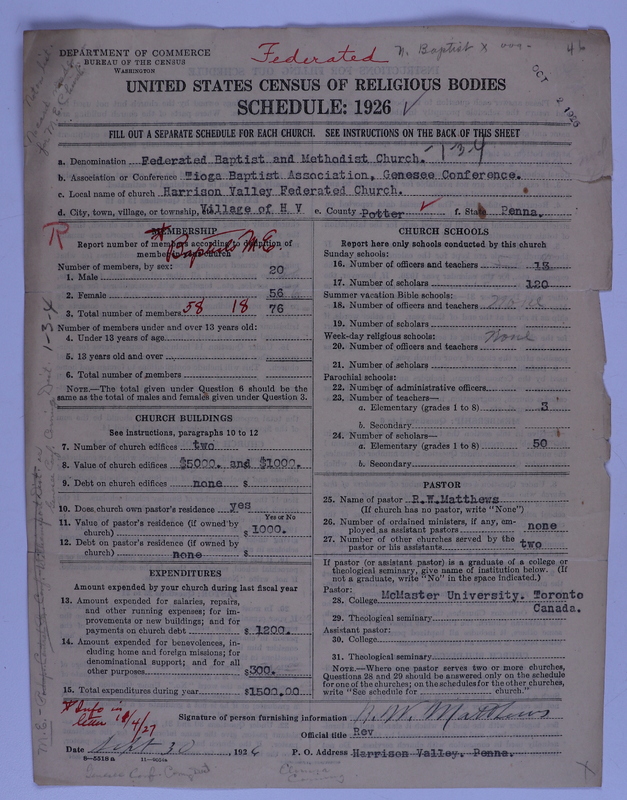 Federated
N. Baptist x
46
DEPARTMENT OF COMMERCE
BUREAU OF THE CENSUS
WASHINGTON
OCT 2 1926
UNITED STATES CENSUS OF RELIGIOUS BODIES
SCHEDULE: 1926 ✓
FILL OUT A SEPARATE SCHEDULE FOR EACH CHURCH. SEE INSTRUCTIONS ON THE BACK OF THIS SHEET
a. Denomination Federated Baptist and Methodist Church. -1-3-4
b. Association or Conference Tioga Baptist Association, Genesee Conference.
c. Local name of church Harrison Valley Federated Church.
d. City, town, village, or township, Village of H V e. County Potter ✓ f. State Penna.
MEMBERSHIP
Report number of members according to definition of
member in each church
* Baptists M.E.
Number of members, by sex:
1. Male 20
2. Female 56
3. Total number of members 58 18 76
Number of members under and over 13 years old:
4. Under 13 years of age
5. 13 years old and over
6. Total number of members
NOTE.—The total given under Question 6 should be the
same as the total of males and females given under Question 3.
CHURCH BUILDINGS
See instructions, paragraphs 10 to 12
7. Number of church edifices two
8. Value of church edifices $5000. and $1000.
9. Debt on church edifices none $
10. Does church own pastor's residence? yes
Yes or No
11. Value of pastor's residence (if owned by
church) $ 1000.
12. Debt on pastor's residence (if owned by
church) none $
EXPENDITURES
Amount expended by your church during last fiscal year
13. Amount expended for salaries, repairs,
and other running expenses; for im-
provements or new buildings; and for
payments on church debt $ 1200.
14. Amount expended for benevolences, in-
cluding home and foreign missions; for
denominational support; and for all
other purposes $300.
15. Total expenditures during year $1500.00
CHURCH SCHOOLS
Report here only schools conducted by this church
Sunday schools:
16. Number of officers and teachers 13
17. Number of scholars 120
Summer vacation Bible schools:
18. Number of officers and teachers None
19. Number of scholars
Week-day religious schools: None
20. Number of officers and teachers
21. Number of scholars
Parochial schools:
22. Number of administrative officers
23. Number of teachers—
a. Elementary (grades 1 to 8) 3
b. Secondary
24. Number of scholars—
a. Elementary (grades 1 to 8) 50
b. Secondary
PASTOR
25. Name of pastor R.W.Matthews
(If church has no pastor, write "None")
26. Number of ordained ministers, if any, em-
ployed as assistant pastors none
27. Number of other churches served by the
pastor or his assistants two
If pastor (or assistant pastor) is a graduate of a college or
theological seminary, give name of institution below. (If
not a graduate, write "No" in the space indicated.)
Pastor:
28. College McMaster University. Toronto
Canada.
29. Theological seminary
Assistant pastor:
30. College
31. Theological seminary
NOTE.—Where one pastor serves two or more churches,
Questions 28 and 29 should be answered only on the schedule
for one of the churches; on the schedules for the other churches,
write "See schedule for church."
* Info in
letter 1/4/27
Signature of person furnishing information R. W. Matthews
Official title Rev
Date Sept 30, 1926 P. O. Address Harrison Valley. Penna.
8-5518 a